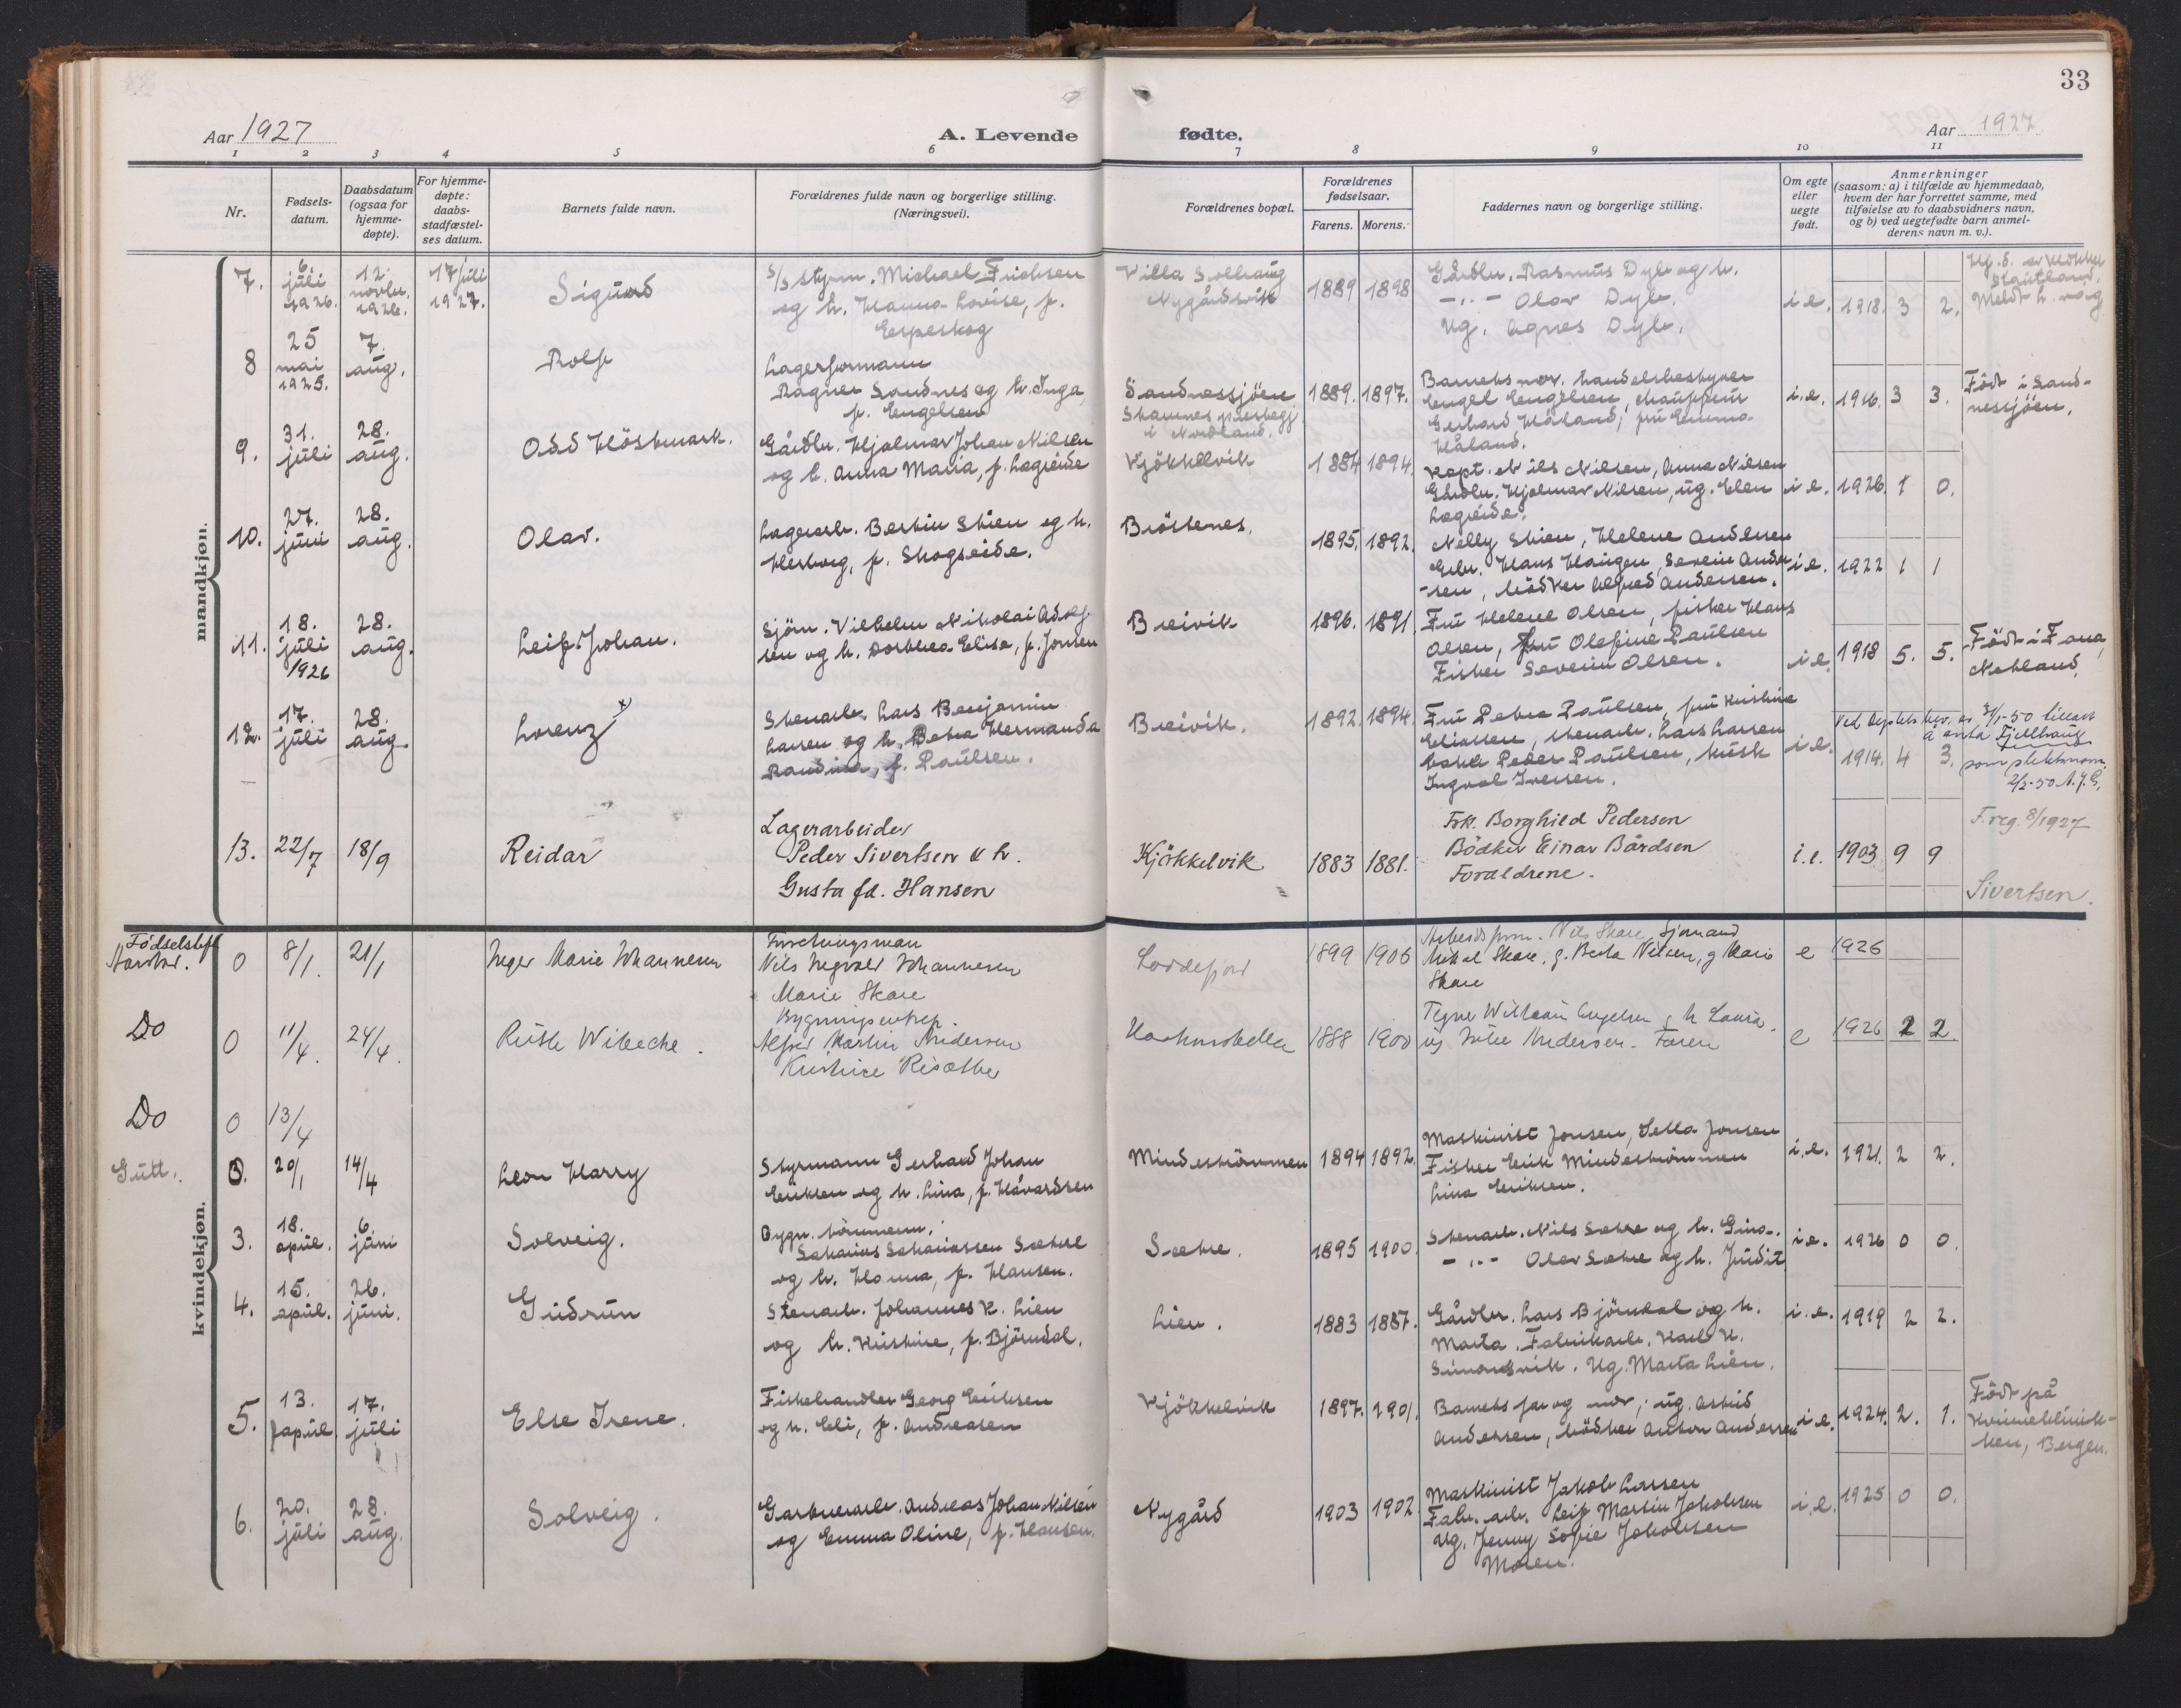 33
Aar 1927
A. Levende fødte.
Aar 1927
1 2 3 4 5 6 7 8 9 10 11
Nr.
Fødsels-
datum.
Daabsdatum
(ogsaa for
hjemme-
døpte).
For hjemme-
døpte:
daabs-
stadfæstel-
ses datum.
Barnets fulde navn.
Forældrenes fulde navn og borgerlige stilling.
(Næringsvei).
Forældrenes bopæl.
Forældrenes
fødselsaar.
Farens. Morens.
Faddernes navn og borgerlige stilling.
Om egte
eller
uegte
født.
Anmerkninger
(saasom: a) i tilfælde av hjemmedaab,
hvem der har forrettet samme, med
tilføielse av to daabsvidners navn,
og b) ved uegtefødte barn anmel-
derens navn m. v.).
mandkjøn.
7.
6. juli 1926.
12. novbr. 1926.
17 juli 1927.
Sigurd
S/S styrm. Michael Frichsen
og h. Hanna Lovise, f.
Espeskog
Villa Solhaug
Nygårdsvik
1889 1898
Gårdbr. Rasmus Dyb og h.
-,,- Olav Dyb.
Ug. Agnes Dyb.
i e. 1918. 3 2.
8
25 mai 1925.
7. aug.
Rolf
Lagerformann
Ragner Sandnes og h. Inga,
f. Engelsen
Sandnessjöen
Stamnes prestegj.
i Nordland.
1889. 1897.
Barnets mor, handelsbestyrer
Engel Engelsen,
Gerhard Håland, fru Emma
Håland.
i.e. 1916. 3 3.
Födt i Sand-
nessjöen.
9.
31. juli
28. aug.
Odd Höstmark.
Gårdbr. Hjalmar Johan Nilsen
og h. Anna Maria, f. Lægreide
Kjökkelvik
1884 1894.
Kapt. Nils Nilsen, Anna Nilsen
Gårdbr. Hjalmar Nilsen, ug. Elen
Lægreide.
i e. 1926. 1 0.
10.
27. juni
28. aug.
Olav.
Lagerarb. Bertin Skien og h.
Herborg, f. Skogseide.
Bröstenes.
1895. 1892.
Nelly Skien, Helene Andersen
Hans Haugen, Severin Ander-
-sen, bödker Alfred Andersen.
i e. 1922 1 1
11.
18. juli 1926
28. aug.
Leif Johan.
Sjöm. Vilhelm Nikolai Adolf-
sen og h. Dorthea Elise, f. Jonsen
Breivik
1896. 1891.
Fru Helene Olsen, fisker Hans
Olsen, fru Olefine Paulsen
Fisker Severin Olsen.
i e. 1918 5. 5.
Födt i Fana,
12.
17. juli
28. aug.
Lorenz x
Stenarb. Lars Benjamin
Larsen og h. Petra Hermanda
Randina, f. Paulsen.
Breivik.
1892. 1894.
Fru Petra Paulsen, fru Kristine
Eliassen, stenarb. Lars Larsen
Peder Paulsen, kusk
Ingval Iversen.
i e. 1914. 4 3.
å anta Fjellhaug
som slektsnavn.
2/2-50 A.J.G.
13.
22/7
18/9
Reidar
Lagerarbeider
Peder Sivertsen & h.
Gusta fd. Hansen
Kjökkelvik
1883 1881.
Frk. Borghild Pedersen
Bödker Einar Bårdsen
Foraldrene.
i.e. 1903 9 9
F.reg. 8/1927
Sivertsen.
kvindekjøn.
Fødselsbyfl.
0
8/1.
21/1
Inger Marie Johannesen
Forretningsman
Nils Ingvald Johannesen
Marie Skare
Loddefjord
1899 1906
Arbeidsform. Nils Skare, Sjømand
Mikal Skare, g. Berta Nilsen, g Marie
Skare
e 1926
Do
0
11/4.
24/4.
Ruth Wibecke.
Bygningsentrep.
Alfred Martin Andersen
Kristine Risøther
1888 1900
Andersen. Faren
e 1926 2 2.
Do
0
13/4
Gutt.
20/1
14/4
Leon Harry
Styrmann Gerhard Johan
Eriksen og h. Lina, f. Håvardsen
Mindeströmmen
1894 1892.
Maskinist Jonsen, Sella Jonsen
Fisker Erik Mindeströmmen
Lina Eriksen.
i.e. 1921. 2 2.
3.
18. april.
6. juni
Solveig.
Bygn. tömmerm.
Sakarias Sakariassen Sætre
og h. Hanna, f. Hansen.
Sætre.
1895 1900.
Stenarb. Nils Sætre og h. Gina.
-,,- Olav Sætre og h. Judit.
i e. 1926 0 0.
4.
15. april.
26. juni.
Gudrun
Stenarb. Johannes K. Lien
og h. Kristine, f. Björndal.
Lien.
1883 1887.
Gårdbr. Lars Björndal og h.
Marta. Fabrikarb. Karl K.
Simonsvik. Ug. Marta Lien.
i.e. 1919 2 2.
5.
13. april
17. juli
Else Irene.
Fiskehandler Georg Eriksen
og h. Eli, f. Andreasen
Kjökkelvik
1897. 1901.
Barnets far og mor, ug. Astrid
Andersen, bödker Anton Andersen
i e. 1924. 2. 1.
Födt på
Kvinneklinik-
ken, Bergen.
6.
20. juli
28. aug.
Solveig.
Garverarb. Andreas Johan Nilsen
og Emma Oline, f. Hansen.
Nygård
1903 1902
Maskinist Jakob Larsen
Fabr. arb. Leif Martin Jakobsen
Ug. Jenny Sofie Jakobsen
Moren.
i.e. 1925 0 0.